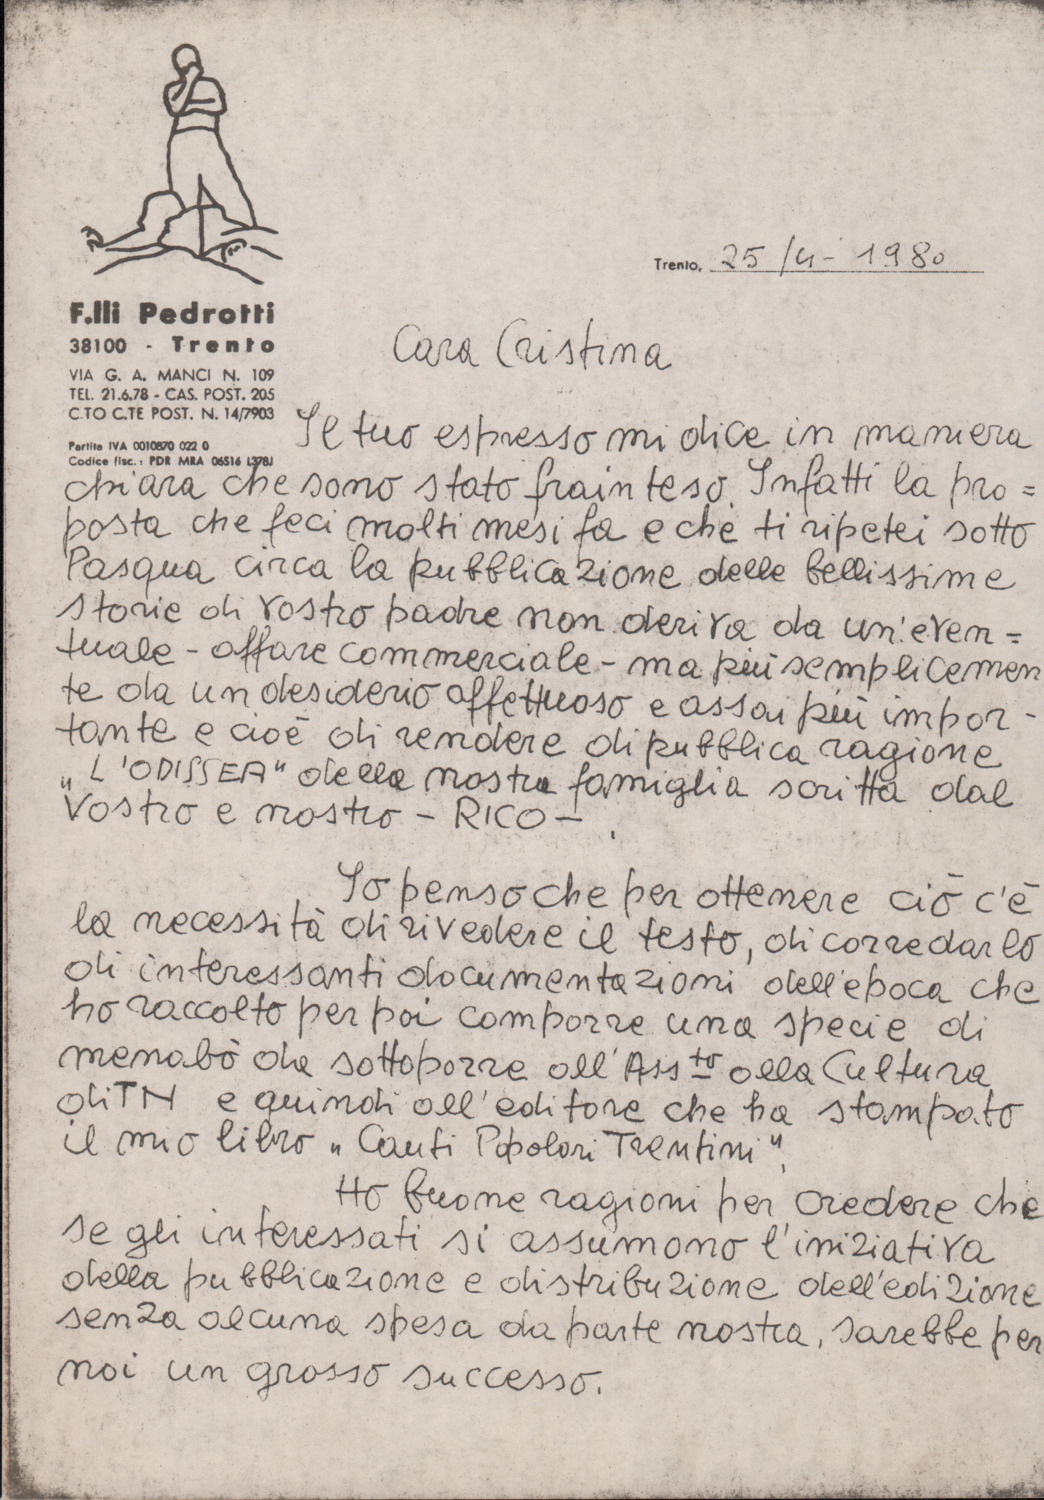 F.lli Pedrotti
38100 - Trento
VIA G. A. MANCI N. 109
TEL. 21.6.78 - CAS. POST. 205
C.TO C.TE POST. N. 14/7903
Partita IVA 0010870 022 0
Codice fisc.: PDR MRA 06S16 L378J
Trento, 25/4- 1980
Cara Cristina
Il tuo espresso mi dice in maniera
chiara che sono stato frainteso. Infatti la pro=
posta che feci molti mesi fa e che ti ripetei sotto
Pasqua circa la pubblicazione delle bellissime
storie di vostro padre non deriva da un'even=
tuale - affare commerciale - ma più semplicemen
te da un desiderio affettuoso e assai più impor-
tante e cioè di rendere di pubblica ragione
„L'ODISSEA" della nostra famiglia scritta dal
Vostro e nostro - RICO - .
Io penso che per ottenere ciò c'è
la necessità di rivedere il testo, di corredarlo
di interessanti documentazioni dell'epoca che
ho raccolto per poi comporre una specie di
menabò da sottoporre all'Ass.to alla Cultura
di TN e quindi all'editore che ha stampato
il mio libro „Canti Popolari Trentini".
Ho buone ragioni per credere che
se gli interessati si assumono l'iniziativa
della pubblicazione e distribuzione dell'edizione
senza alcuna spesa da parte nostra, sarebbe per
noi un grosso successo.